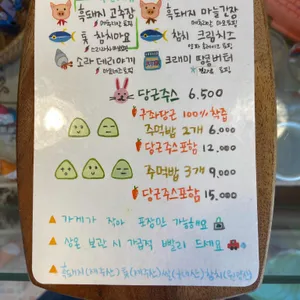 흑돼지 고추장 흑돼지 마늘간장
톳 참치마요 참치 크림치즈
소라 데리야끼 크래미 땅콩버터
당근주스 6,500
구좌당근 100% 착즙
주먹밥 2개 6,000
당근주스포함 12,000
주먹밥 3개 9,000
당근주스포함 15,000
가게가 작아 포장만 가능해요
상온 보관 시 가급적 빨리 드세요
흑돼지(제주산) 톳(제주산) 쌀(국내산) 참치(원양산)